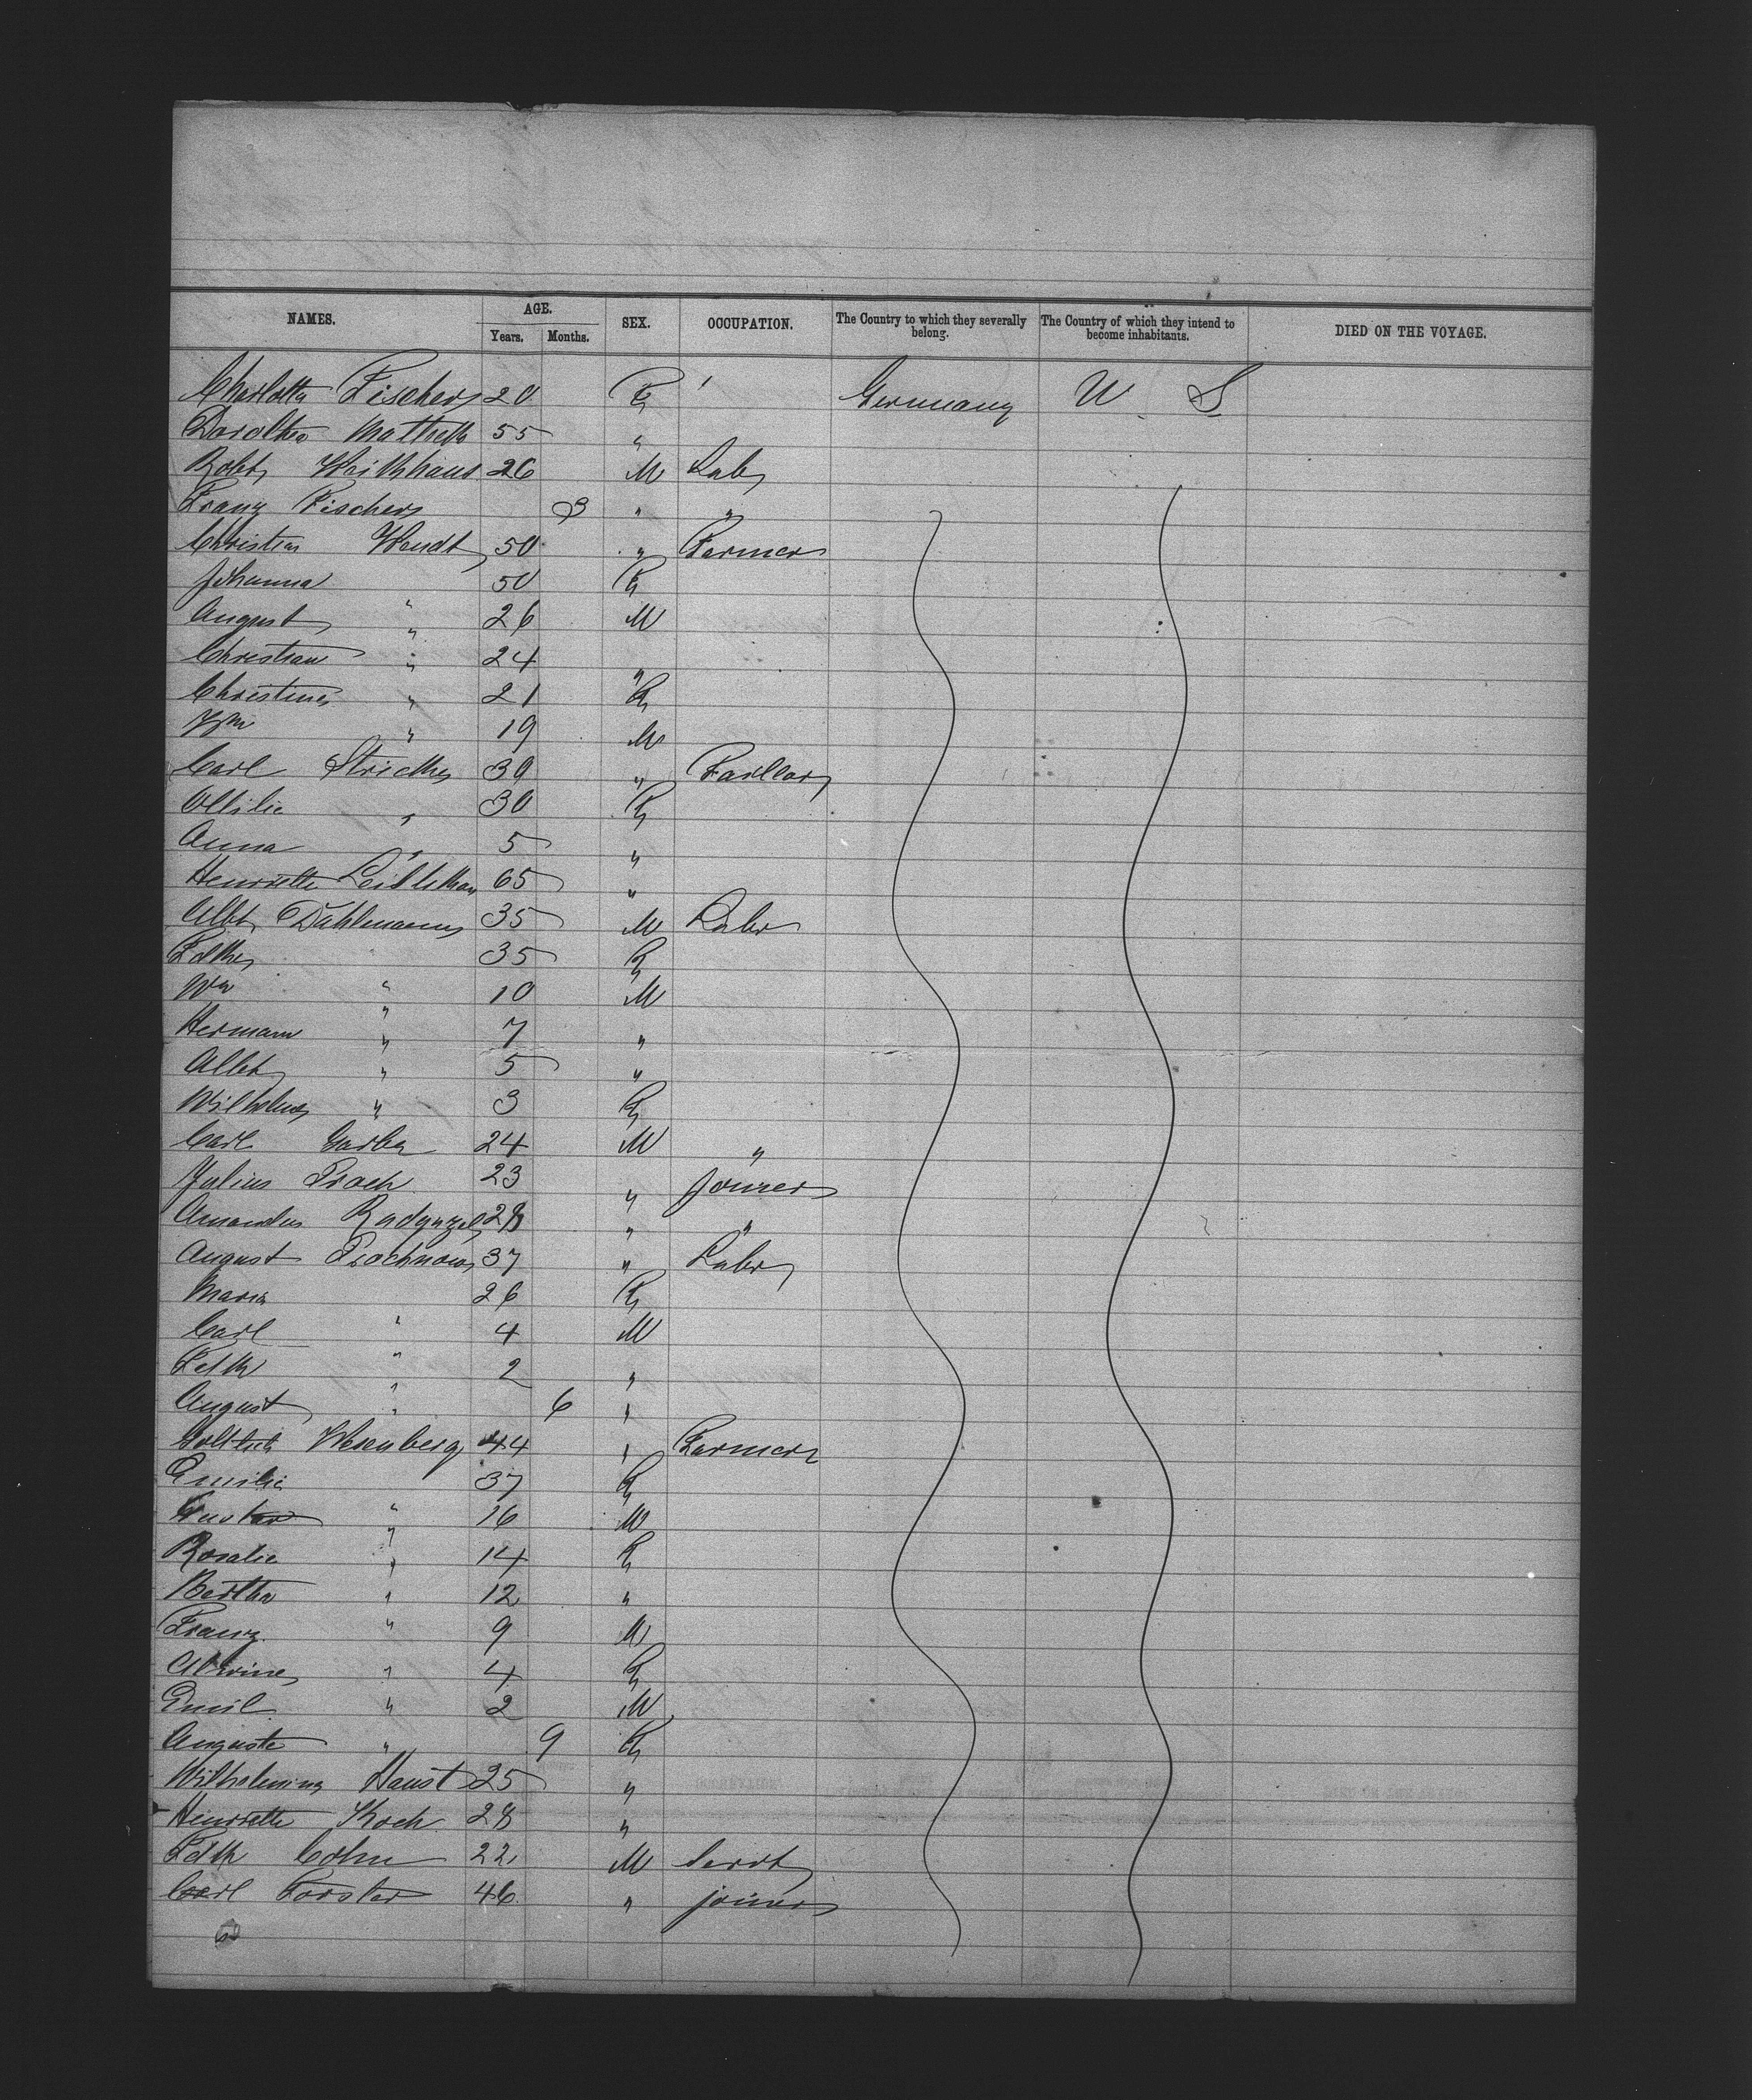 NAMES. AGE. SEX. OCCUPATION. The Country to which they severally belong. The Country of which they intend to become inhabitants. DIED ON THE VOYAGE.
Years. Months.
Charlotta Fischer 20 F Germany U S
Dorothea 55 "
Robt 26 M Labr
Franz Fischer 3 " "
Christian Wendt 50 " Farmer
Johanna " 50 F
August " 26 M
Christian " 24 "
Christine " 21 F
Wm " 19 M
Carl 30 "
Ottilie " 30 F
Anna " 5 "
Henriette 65 "
Albt Dahlmann 35 M Labr
35 F
Wm " 10 M
Hermann " 7 "
Albt " 5 "
Wilhelm " 3 F
Carl Garbe 24 M "
Julius 23 " Joiner
Amandus 28 " "
August Prochnow 37 " Labr
Maria " 26 F
Carl " 4 M
" 2 "
August " 6 "
Gottlieb Wesenberg 44 " Farmer
Emilie " 37 F
Gustav " 16 M
Rosalie " 14 F
Bertha " 12 "
Franz " 9 M
Albertine " 4 F
Emil " 2 M
Auguste " 9 F
Wilhelmina 25 "
Henriette Koch 28 "
22 M
Carl Forster 46 " joiner